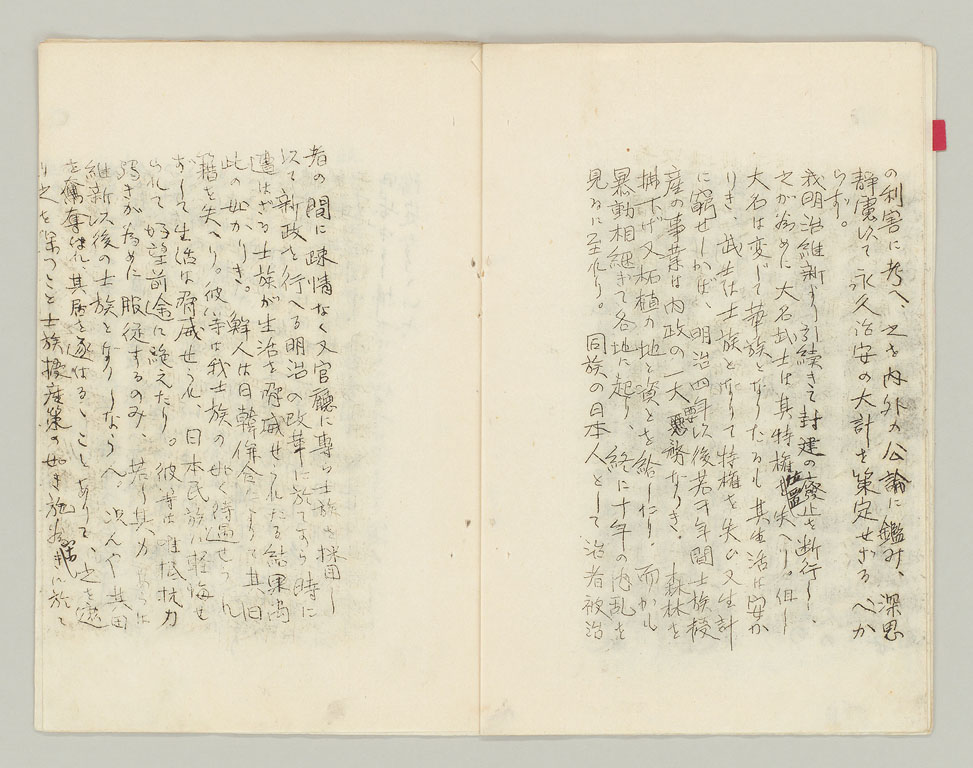 の利害に考へ、之を内外の公論に鑑み、深思
静慮以て永久治安の大計を策定せざるべか
らず。
我明治維新より引続きて封建の廃止を断行し、
之が為めに大名武士は其特権を失へり。但し
大名は変じて華族となりたるも其生活は安か
りき、武士は士族となりて特権を失ひ又生計
に窮せしかば、明治四年以後若干年間士族授
産の事業は内政の一大要務なりき。森林を
払下げ又拓植の地と資とを給したり。而かも
暴動相継ぎて各地に起り、終に十年の内乱を
見るに至れり。同族の日本人として治者被治
者の間に疎情なく又官庁に専ら士族を採用し
以て新政を行へる明治の改革に於てすら時に
遭はざる士族が生活を脅威せられたる結果尚
此の如かりき。鮮人は日韓併合によりて其旧
籍を失へり。彼等は我士族の如く待遇せられ
ずして生活は脅威せられ、日本民族に軽侮せ
られて好望前途に絶えたり。彼等は唯抵抗力
弱きが為めに服従するのみ、若し其力あらば
維新以後の士族となりしならん、況んや其田
を奪はれ、其居を逐はるゝことありて、之を
り之を保つこと士族授産策の如き施為に於て